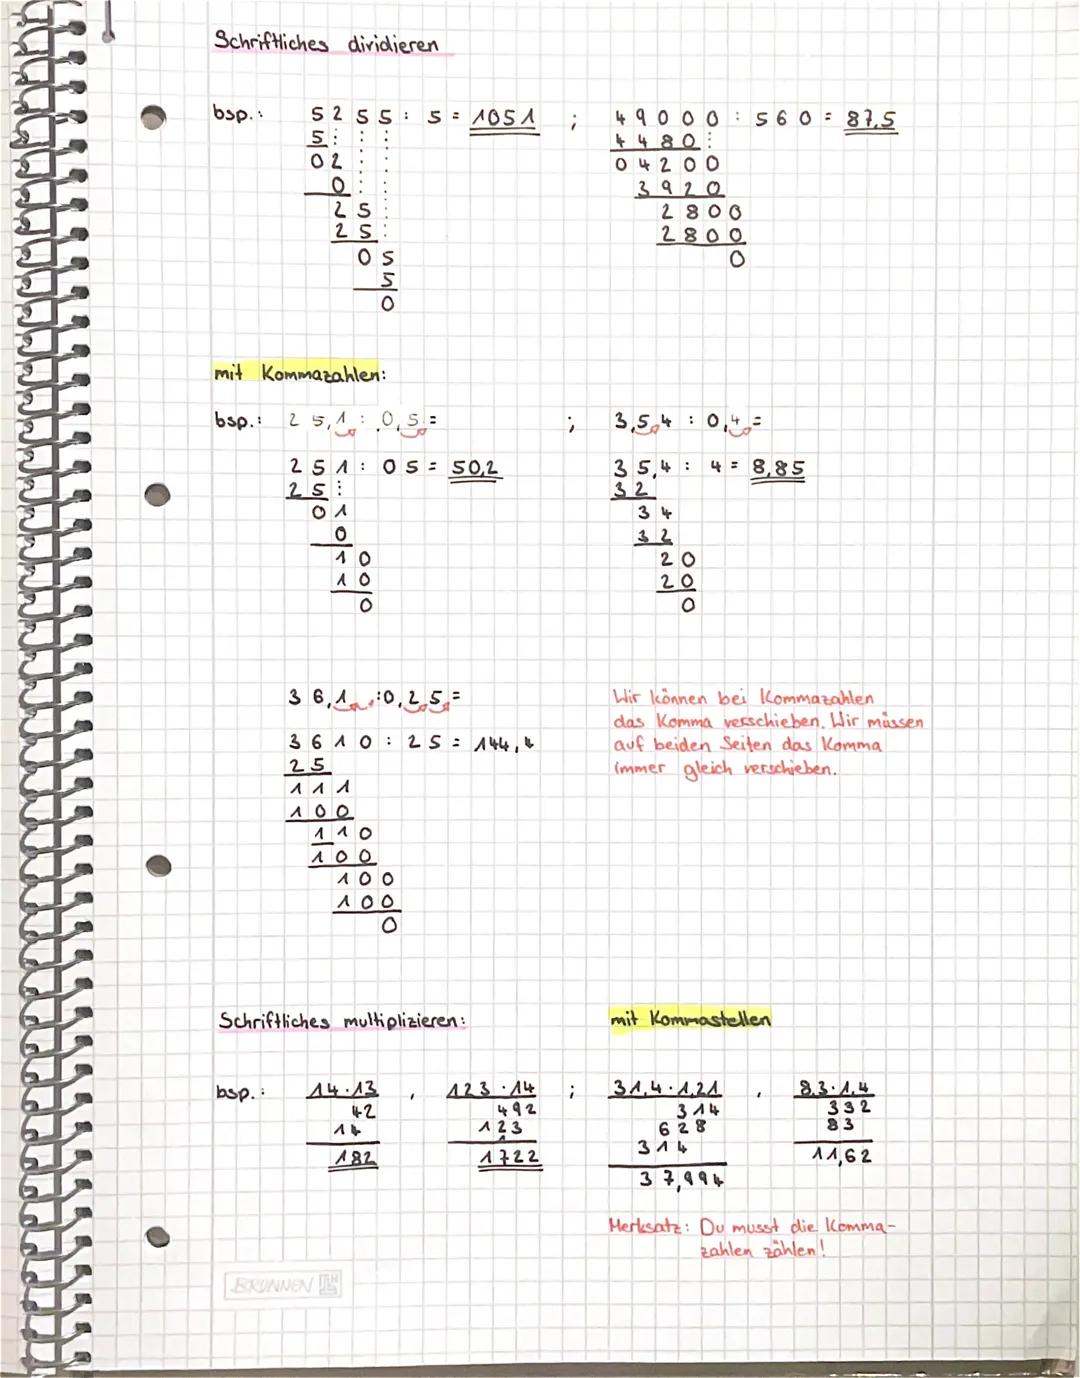 Schriftliches dividieren
bsp.: 5255 : 5 = 1051 ; 49000 : 560 = 87,5
5 4480
02 04200
0 3920
25 2800
25 2800
05 0
5
0
mit Kommazahlen:
bsp.: 25,1 : 0,5 = ; 3,5,4 : 0,4 =
251 : 05 = 50,2 35,4 : 4 = 8,85
25 32
01 34
0 32
10 20
10 20
0 0
36,1 : 0,25 = Wir können bei Kommazahlen
das Komma verschieben. Wir müssen
3610 : 25 = 144,4 auf beiden Seiten das Komma
25 immer gleich verschieben.
111
100
110
100
100
100
0
Schriftliches multiplizieren: mit Kommastellen
bsp.: 14·13 , 123·14 ; 31,4·1,21 , 8,3·1,4
42 492 314 332
14 123 628 83
1 314
182 1722 11,62
37,994
Merksatz: Du musst die Komma-
zahlen zählen!
BRUNNEN